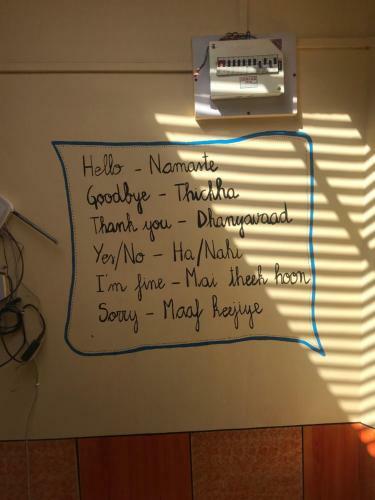 Hello - Namaste
Goodbye - Thickha
Thank you - Dhanyavaad
Yes/No - Ha/Nahi
I'm fine - Mai theek hoon
Sorry - Maaf keejiye